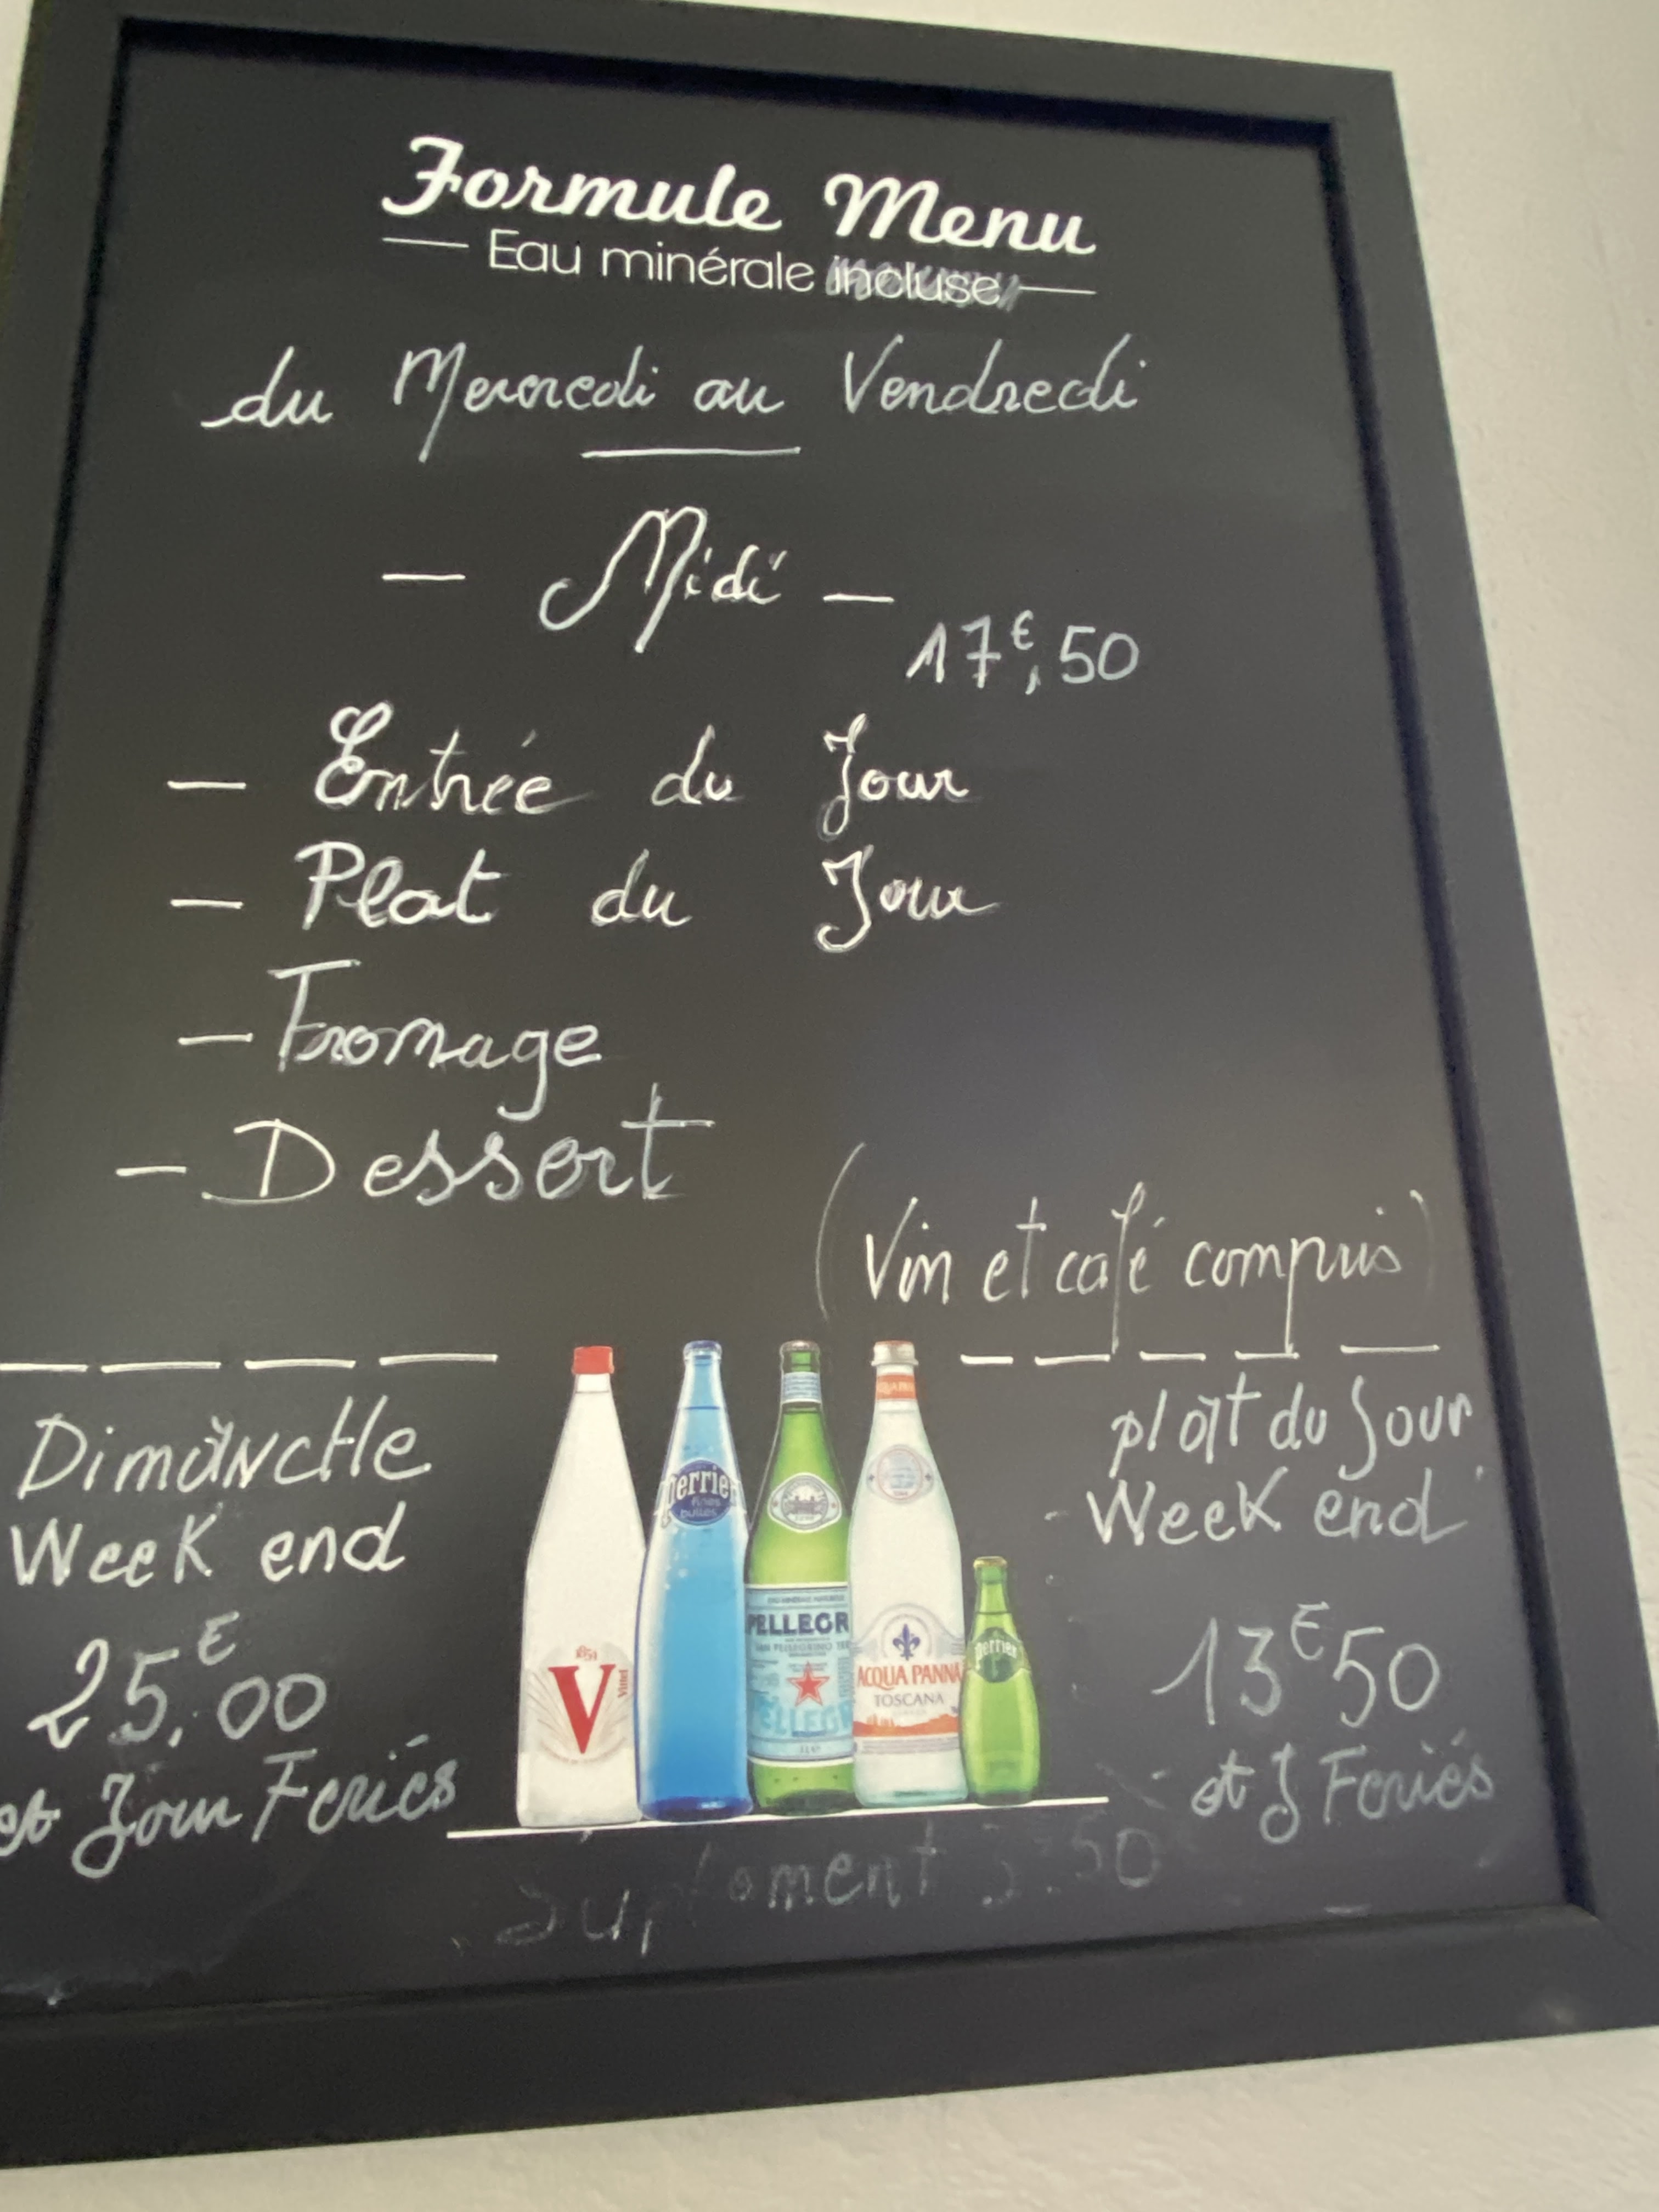 Formule Menu
Eau minérale incluse
du Mercredi au Vendredi
— Midi —
17€,50
— Entrée du Jour
— Plat du Jour
— Fromage
— Dessert
(Vin et café compris)
Dimanche
Week end
25€,00
et Jour Feriés
plat du Jour
Week end
13€50
et J Feriés
1854
V
Vittel
Perrier
fines
bulles
PELLEGR
SAN PELLEGRINO
PELLEGR
ACQUA PANNA
TOSCANA
Perrier
50